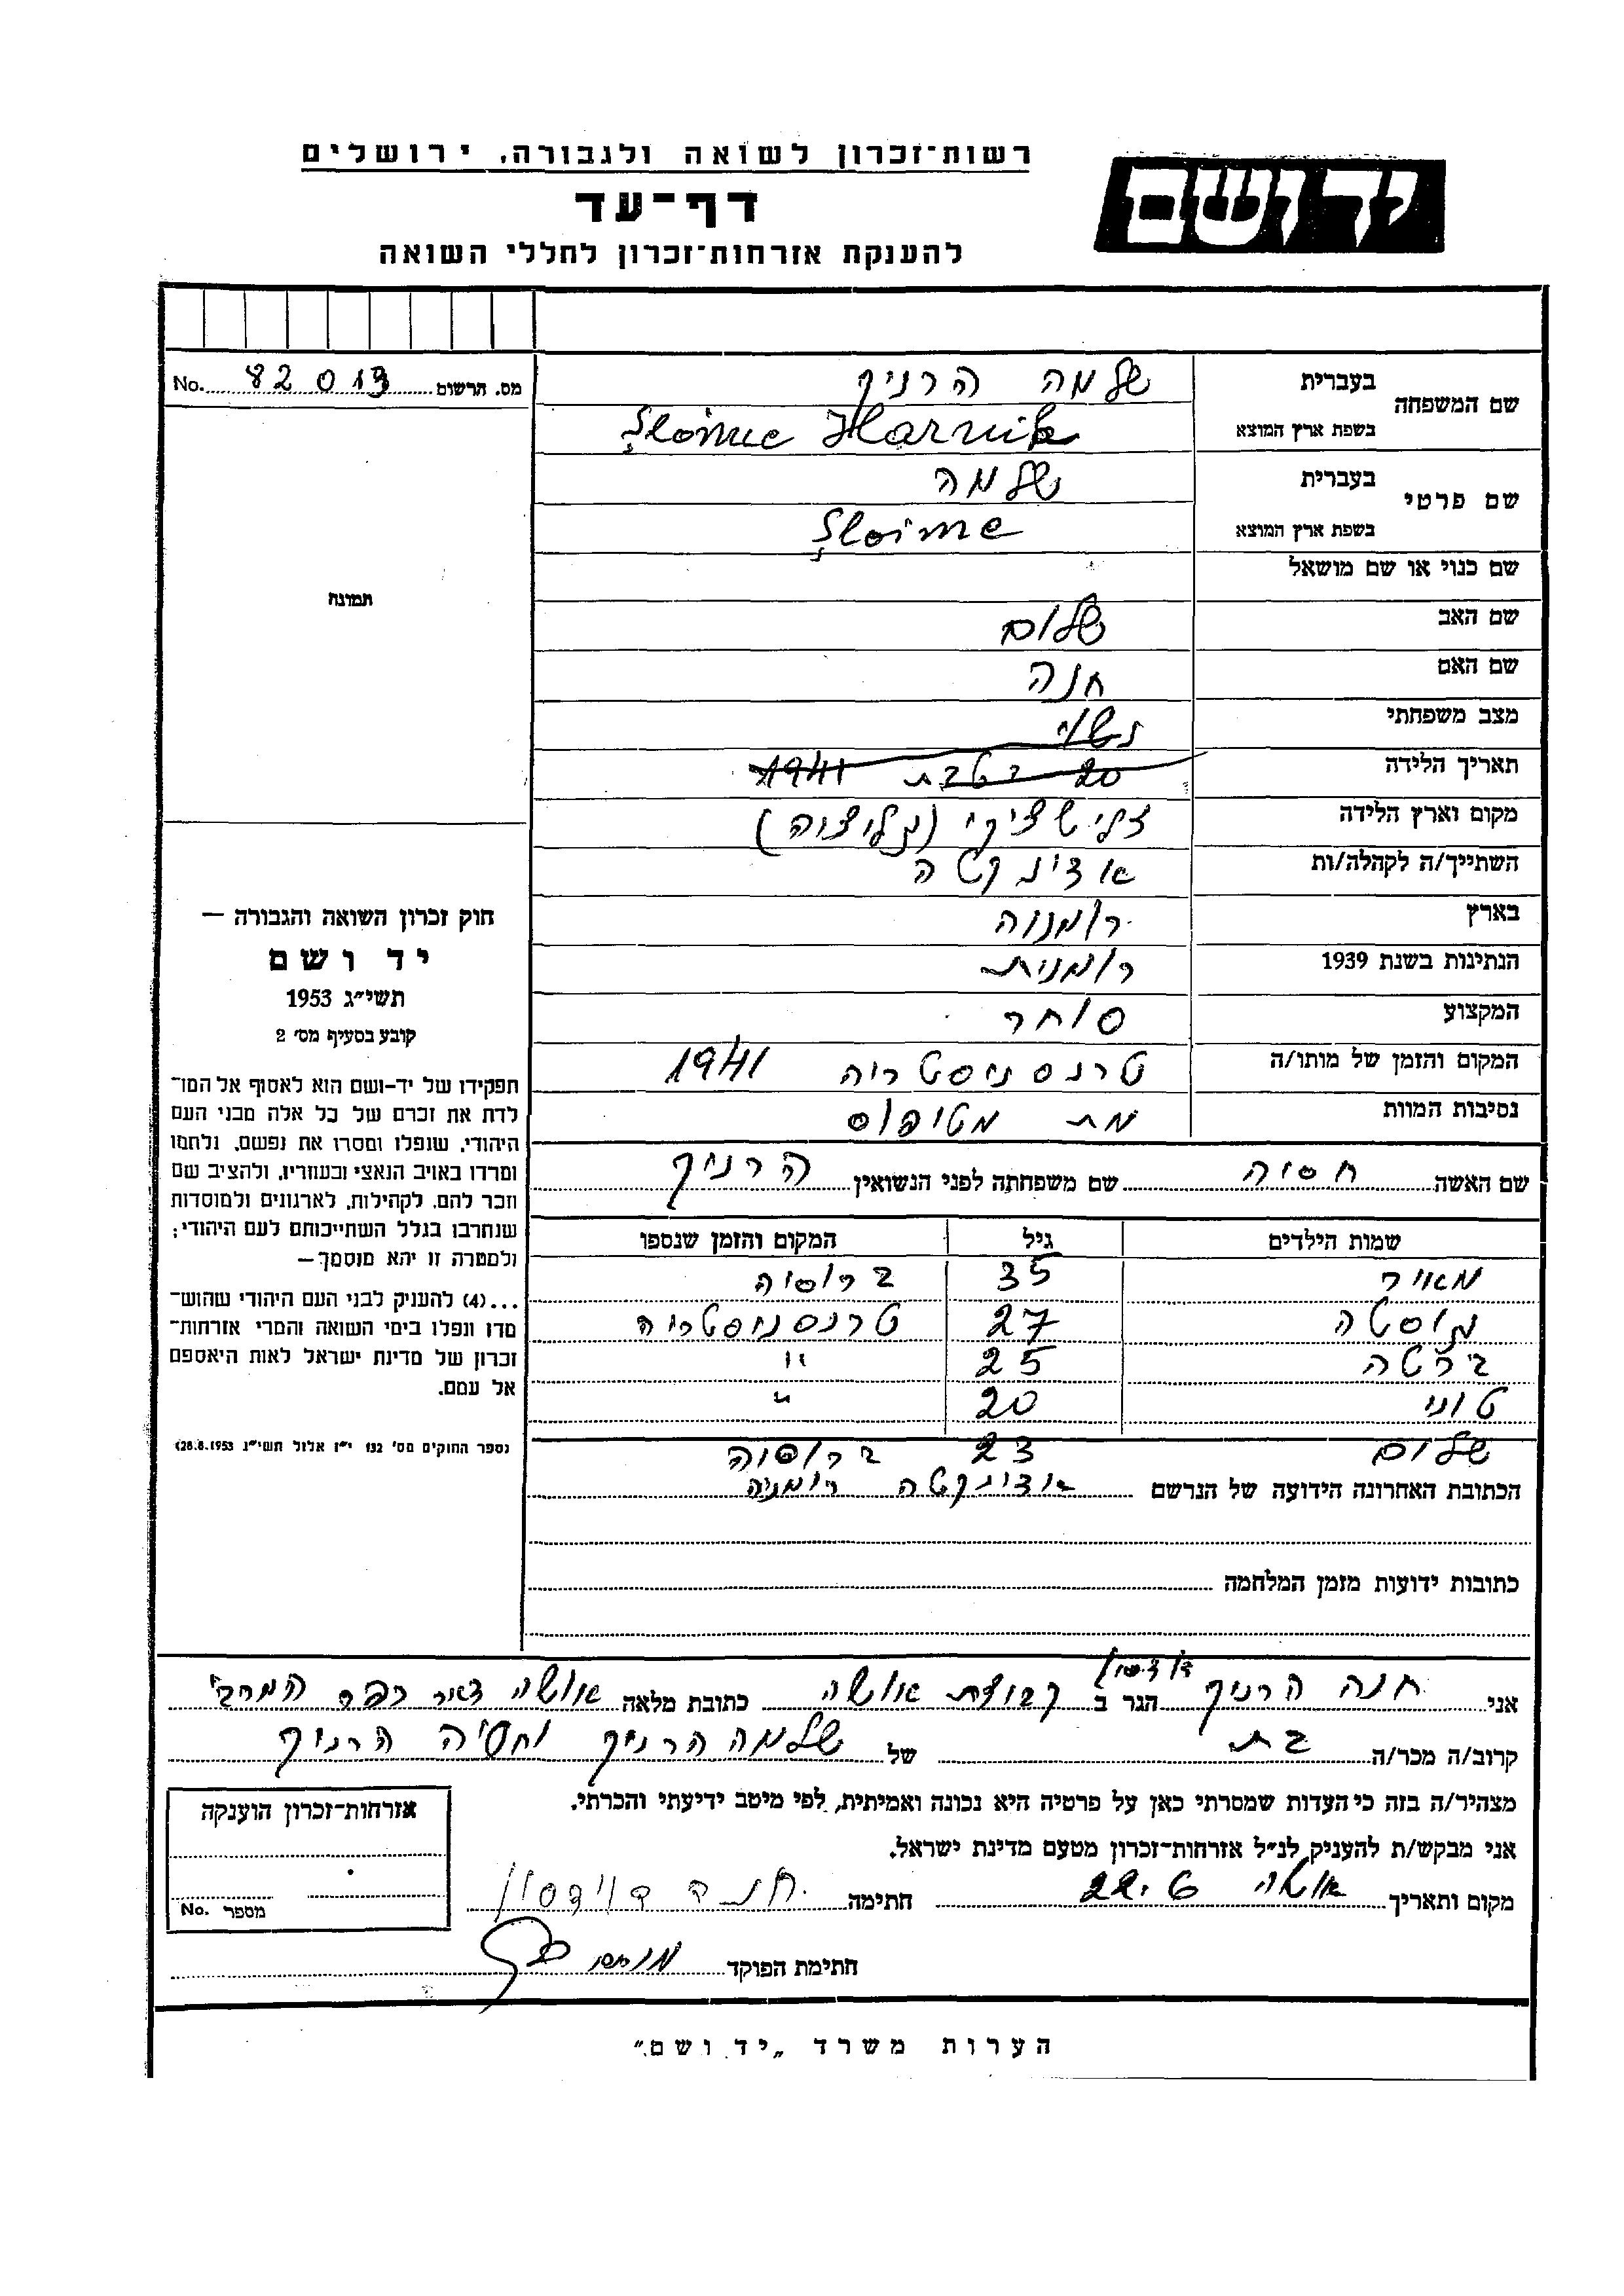 רשות־זכרון לשואה ולגבורה, ירושלים
יד ושם
דף־עד
להענקת אזרחות־זכרון לחללי השואה
מס. הרשום 82013 No.
שם המשפחה
בעברית שלמה הרניק
בשפת ארץ המוצא Şloime Harnik
שם פרטי
בעברית שלמה
בשפת ארץ המוצא Şloime
שם כנוי או שם מושאל
תמונה
שם האב שלום
שם האם חנה
מצב משפחתי נשוי
תאריך הלידה 20 בטבת 1941
מקום וארץ הלידה זלישציקי (גליציה)
השתייך/ה לקהלה/ות אדינקטה
בארץ רומניה
הנתינות בשנת 1939 רומנית
המקצוע סוחר
המקום והזמן של מותו/ה טרנסניסטריה 1941
נסיבות המוות מת מטיפוס
שם האשה חסיה שם משפחתה לפני הנשואין הרניק
שמות הילדים גיל המקום והזמן שנספו
מאיר 35 ברוסיה
גוסטה 27 טרנסניסטריה
ברטה 25 "
טוני 20 "
שלום 23 ברוסיה
הכתובת האחרונה הידועה של הנרשם אדינקטה רומניה
כתובות ידועות מזמן המלחמה
חוק זכרון השואה והגבורה —
יד ושם
תשי״ג 1953
קובע בסעיף מס׳ 2
תפקידו של יד-ושם הוא לאסוף אל המו־
לדת את זכרם של כל אלה מבני העם
היהודי, שנפלו ומסרו את נפשם, נלחמו
ומרדו באויב הנאצי ובעוזריו, ולהציב שם
וזכר להם, לקהילות, לארגונים ולמוסדות
שנחרבו בגלל השתייכותם לעם היהודי;
ולמטרה זו יהא מוסמך—
...(4) להעניק לבני העם היהודי שהוש־
מדו ונפלו בימי השואה והמרי אזרחות־
זכרון של מדינת ישראל לאות היאספם
אל עמם.
(ספר החוקים מס׳ 132 י״ז אלול תשי״ג 28.8.1953)
דוידסון
אני חנה הרניק הגר ב קבוצת אושה כתובת מלאה אושה דאר כפר המכבי
קרוב/ה מכר/ה בת של שלמה הרניק וחסיה הרניק
מצהיר/ה בזה כי העדות שמסרתי כאן על פרטיה היא נכונה ואמיתית, לפי מיטב ידיעתי והכרתי.
אני מבקש/ת להעניק לנ״ל אזרחות־זכרון מטעם מדינת ישראל.
מקום ותאריך אושה 22.6 חתימה חנה דוידסון
חתימת הפוקד
אזרחות־זכרון הוענקה
מספר No.
הערות משרד „יד ושם״